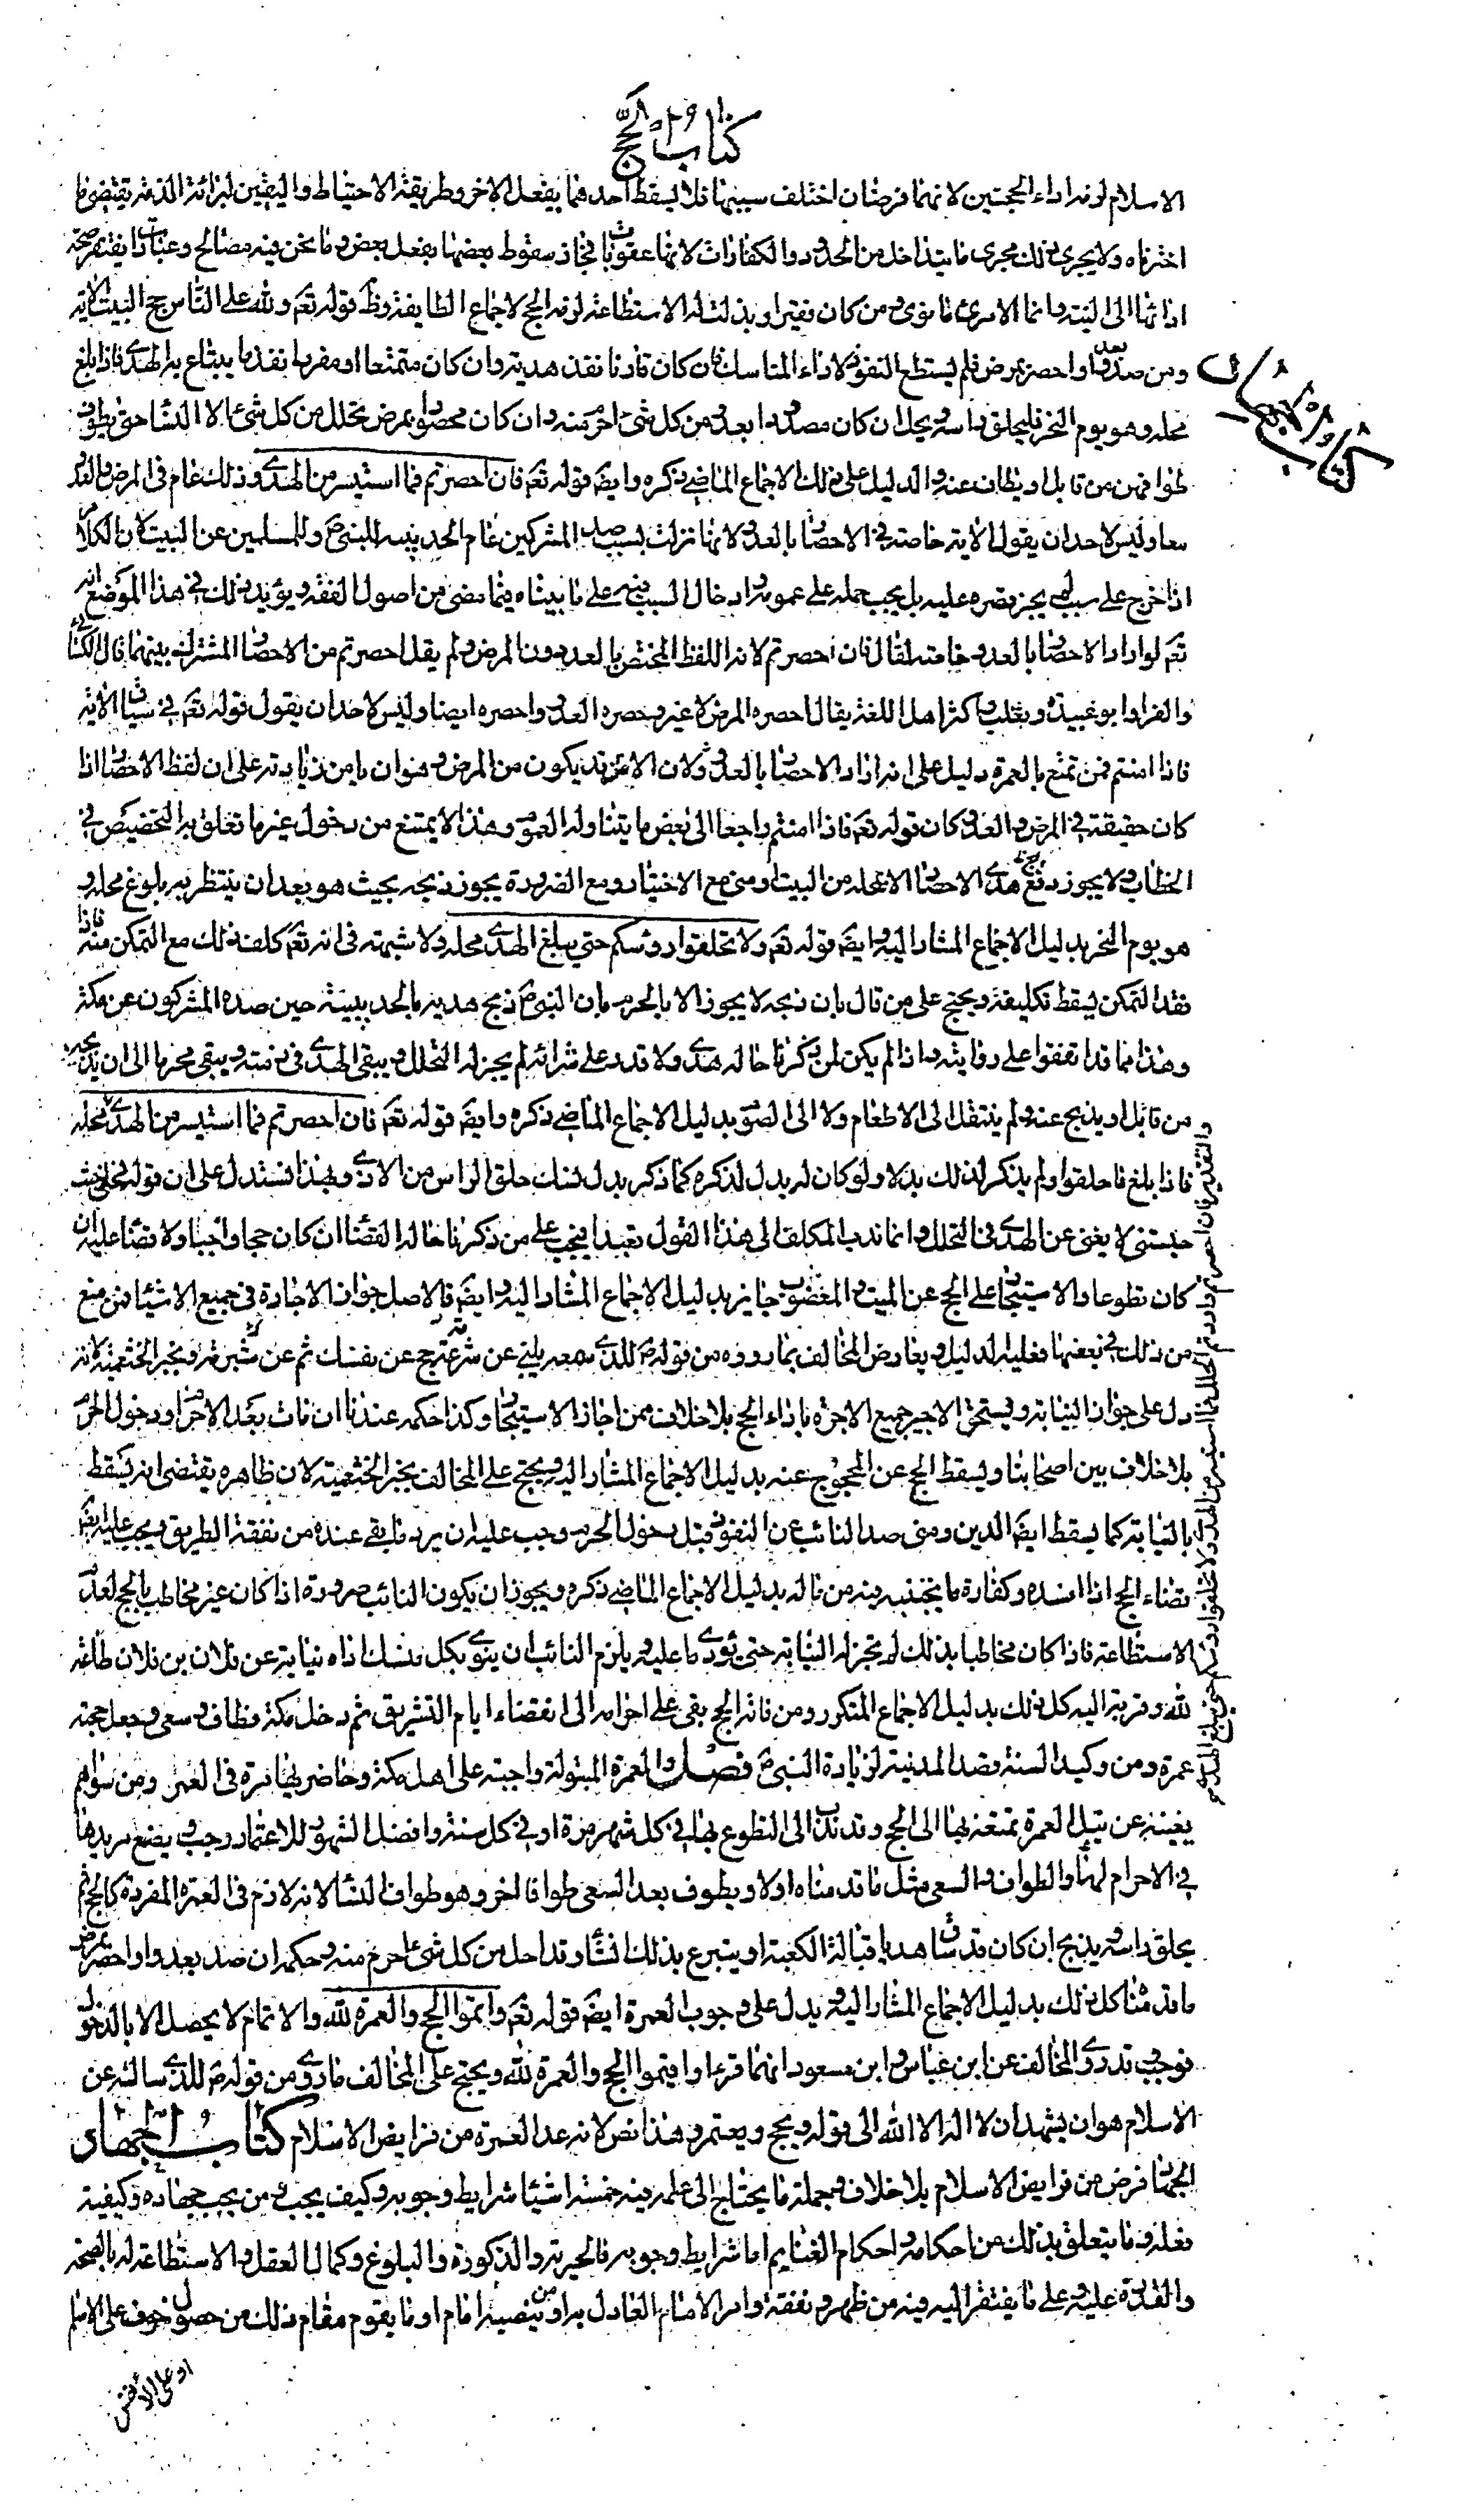 كتاب الحج
الاسلام لزمه اداء الحجتين لانهما فرضان اختلف سببهما فلا يسقط احدهما بفعل الاخر وطريقة الاحتياط واليقين لبرائة الذمة يقتضى ما
اخترناه ولا يجرى ذلك مجرى ما يتداخل من الحدود والكفارات لانها عقوبات فجاز سقوط بعضها بفعل بعض وما نحن فيه مصالح وعبادات يفتقر صحة
ادائها الى النية وانما لامرئ ما نوى ومن كان فقيرا وبذلت له الاستطاعة لزمه الحج لاجماع الطايفة وظ قوله تعم ولله على الناس حج البيت الاية
ومن صد بعدو او احصر بمرض فلم يستطع النفوذ لاداء المناسك فان كان قارنا نفذ هديه وان كان متمتعا او مفردا نفذ ما يبتاع به الهدى فاذا بلغ
محله وهو يوم النحر فليحلق راسه ويحل ان كان مصدودا بعدو من كل شئ احرم منه وان كان محصورا بمرض تحلل من كل شئ الا النسا حتى يطوف
طوافهن من قابل او يطاف عنه والدليل على ذلك الاجماع الماضى ذكره وايضا قوله تعم فان احصرتم فما استيسر من الهدى وذلك عام في المرض والعدو
معا وليس لاحد ان يقول الاية خاصة في الاحصار بالعدو لانها نزلت بسبب صد المشركين عام الحديبية للنبى ص وللمسلمين عن البيت لان الكلام
اذا خرج على سبب لم يجز قصره عليه بل يجب حمله على عمومه وادخال السبب فيه على ما بيناه فيما مضى من اصول الفقه ويؤيد ذلك في هذا الموضع انه
تعم لو اراد الاحصار بالعدو خاصة لقال فان حصرتم لانه اللفظ المختص بالعدو دون المرض ولم يقل احصرتم من الاحصار المشترك بينهما قال الكسائى
والفرا وابو عبيدة وثعلب واكثر اهل اللغة يقال احصره المرض لا غير وحصره العدو واحصره ايضا وليس لاحد ان يقول قوله تعم في سياق الاية
فاذا امنتم فمن تمتع بالعمرة دليل على انه اراد الاحصار بالعدو لان الامن قد يكون من المرض وهو ان يامن زيادته على ان لفظ الاحصار اذا
كان حقيقة في المرض والعدو كان قوله تعم فاذا امنتم راجعا الى بعض ما يتناوله العموم وهذا لا يمتنع من دخول غير ما تعلق به التخصيص في
الخطاب ولا يجوز ذبح هدى الاحصار الا بمحله من البيت او منى مع الاختيار ومع الضرورة يجوز ذبحه بحيث هو بعد ان ينتظر به بلوغ محله و
هو يوم النحر بدليل الاجماع المشار اليه وايضا قوله تعم ولا تحلقوا رؤسكم حتى يبلغ الهدى محله ولا شبهة في انه تعم كلف ذلك مع التمكن منه فاذا
فقد التمكن يسقط تكليفه ويحتج على من قال بان ذبحه لا يجوز الا بالحرم بان النبى ص ذبح هديه بالحديبية حين صده المشركون عن مكة
وهذا مما قد اتفقوا على روايته واذا لم يكن لمن ذكرنا حاله هدى ولا قدر على شرائه لم يجز له التحلل ويبقى الهدى في ذمته ويبقى محرما الى ان يذبحه
من قابل او يذبح عنه ولم ينتقل الى الاطعام ولا الى الصوم بدليل الاجماع الماضى ذكره وايضا قوله تعم فان احصرتم فما استيسر من الهدى محله
فاذا بلغ فاحلقوا ولم يذكر لذلك بدلا ولو كان له بدل لذكره كما ذكر بدل نسك حلق الراس من الاذى وبهذا نستدل على ان قوله فحلنى حيث
حبستنى لا يغنى عن الهدى في التحلل وانما ندب المكلف الى هذا القول تعبدا فيجب على من ذكرنا حاله القضا ان كان حجا واجبا ولا قضا عليه ان
كان تطوعا والاستيجار على الحج عن الميت والمعضوب جايز بدليل الاجماع المشار اليه وايضا فالاصل جواز الاجارة في جميع الاشيا فمن منع
من ذلك في بعضها فعليه الدليل ويعارض المخالف بما رووه من قوله ص للذى سمعه يلبى عن شبرمة حج عن نفسك ثم عن شبرمة وبخبر الخثعمية لانه
دل على جواز النيابة ويستحق الاجير جميع الاجرة باداء الحج بلا خلاف ممن اجاز الاستيجار وكذا حكمه عندنا ان مات بعد الاحرام ودخول الحرم
بلا خلاف بين اصحابنا ويسقط الحج عن المحجوج عنه بدليل الاجماع المشار اليه ويحتج على المخالف بخبر الخثعمية لان ظاهره يقتضى انه يسقط
بالنيابة كما يسقط ايضا الدين ومتى صد النائب عن النفوذ قبل دخول الحرم وجب عليه ان يرد ما بقى عنده من نفقة الطريق ويجب عليه ايضا
قضاء الحج اذا افسده وكفارة ما يجتنبه فيه من ماله بدليل الاجماع الماضى ذكره ويجوز ان يكون النائب صرورة اذا كان غير مخاطب بالحج لعدم
الاستطاعة فاذا كان مخاطبا بذلك لم تجز له النيابة حتى يؤدى ما عليه ويلزم النائب ان ينوى بكل منسك اداه نيابة عن فلان بن فلان طاعة
لله وقربة اليه كل ذلك بدليل الاجماع المتكرر ومن فاته الحج بقى على احرامه الى انقضاء ايام التشريق ثم دخل مكة فطاف وسعى وجعل حجته
عمرة ومن وكيد السنة قصد المدينة لزيارة النبى ص فصل والعمرة المبتولة واجبة على اهل مكة وحاضريها مرة في العمر ومن سواهم
يغنيه عن تبتل العمرة تمتعه بها الى الحج وقد ندب الى التطوع بها في كل شهر مرة او في كل سنة وافضل الشهور للاعتمار رجب ويصنع مريدها
في الاحرام لها والطواف والسعى مثل ما قدمناه اولا ويطوف بعد السعى طوافا اخر وهو طواف النسا لانه لازم في العمرة المفردة كالحج ثم
يحلق راسه ويذبح ان كان قد ساق هديا قبالة الكعبة او يتبرع بذلك ان شاء وقد احل من كل شئ احرم منه وحكمه ان صد بعدو او احصر بمرض
ما قدمنا كل ذلك بدليل الاجماع المشار اليه ويدل على وجوب العمرة ايضا قوله تعم واتموا الحج والعمرة لله والاتمام لا يحصل الا بالدخول
فوجب وقد روى المخالف عن ابن عباس وابن مسعود انهما قرءا واقيموا الحج والعمرة لله ويحتج على المخالف ما روى من قوله ص للذى ساله عن
الاسلام هو ان يشهد ان لا اله الا الله الى قوله ويحج ويعتمر وهذا نص لانه عد العمرة من فرايض الاسلام كتاب الجهاد
الجهاد فرض من فرايض الاسلام بلا خلاف وجملة ما يحتاج الى علمه فيه خمسة اشيا شرايط وجوبه وكيف يجب ومن يجب جهاده وكيفية
فعله وما يتعلق بذلك من احكامه واحكام الغنايم اما شرايط وجوبه فالحرية والذكورة والبلوغ وكمال العقل والاستطاعة له بالصحة
والقدرة عليه وعلى ما يفتقر اليه فيه من ظهر ونفقة وامر الامام العادل به او من ينصبه الامام او ما يقوم مقام ذلك من حصول خوف على الاسلام
او على الانفس
كتاب الجهاد
والتقدير فان احصرتم واردتم التحلل فما استيسر من الهدى ولا تحلقوا رؤسكم حتى يبلغ الهدى محله